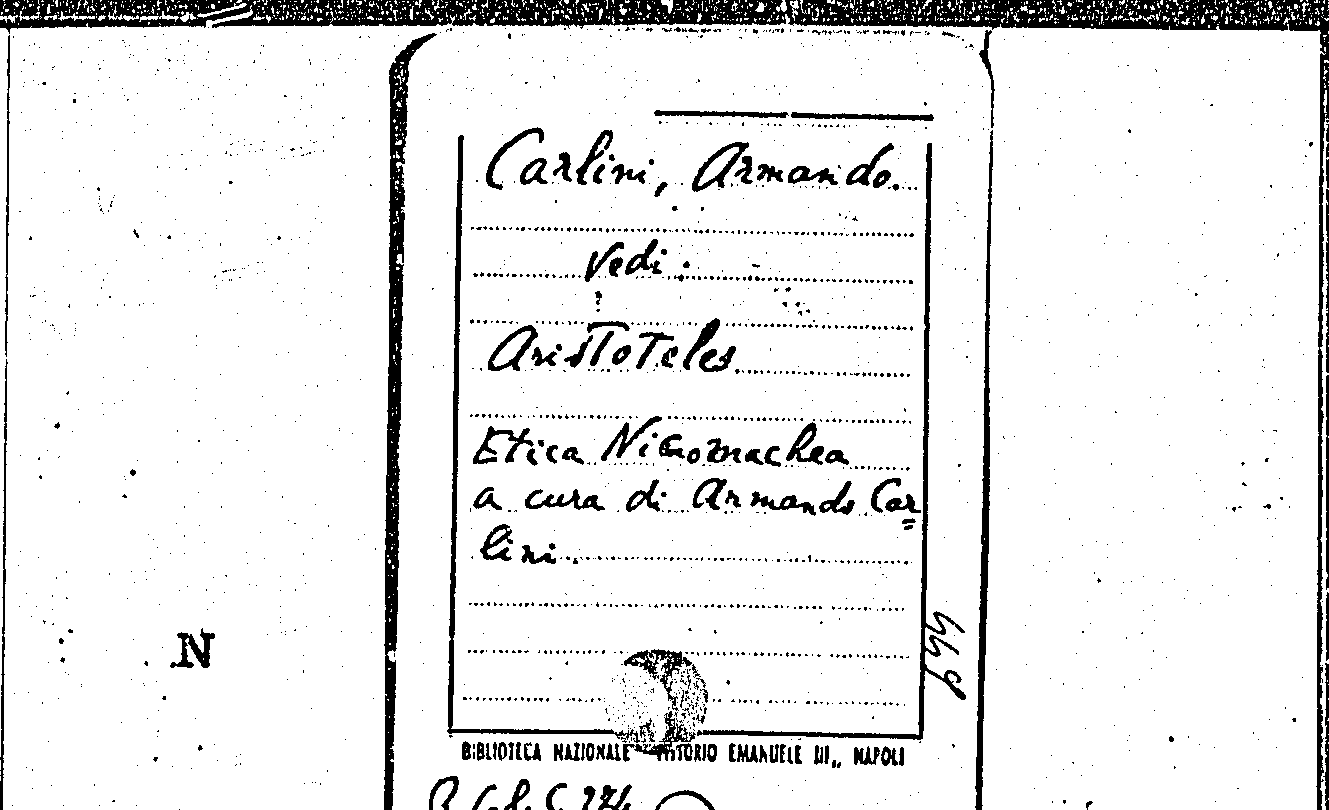 Carlini, Armando.
Vedi:
Aristoteles
Etica Nicomachea
a cura di Armando Car=
lini.
N
BIBLIOTECA NAZIONALE VITTORIO EMANUELE III,, NAPOLI